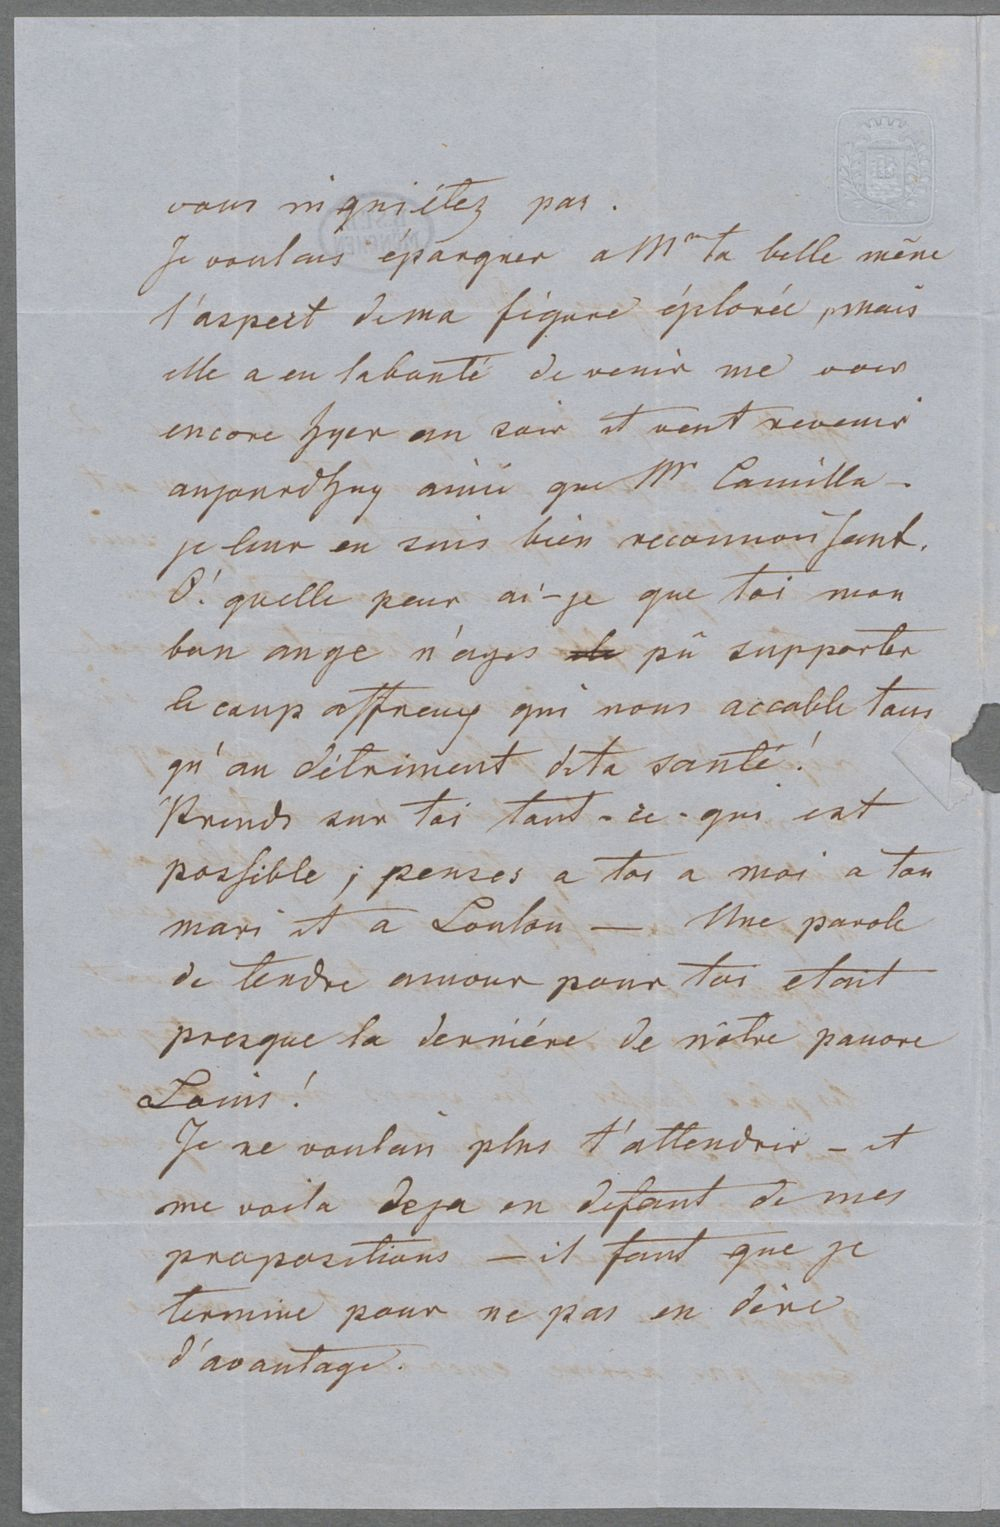 vous inquiétez pas.
Je voulais épargner a Mme ta belle mére
l'aspect de ma figure éplorée, mais
elle a eu la bonté de venir me voir
encore hyer au soir et veut revenir
aujourdhuy ainsi que Mr Camille -
je leur en suis bien reconnoissant.
O! quelle peur ai-je que toi mon
bon ange n'ayes pû supporter
le coup affreux qui nous accable tous
qu'au détriment de ta santé!
Prends sur toi tout-ce-qui est
possible; penses a toi a moi a ton
mari et a Loulou — Une parole
de tendre amour pour toi etoit
presque la derniére de nôtre pauvre
Louis!
Je ne voulais plus t'attendrir - et
me voila deja en defaut de mes
propositions — il faut que je
termine pour ne pas en dire
d'avantage.